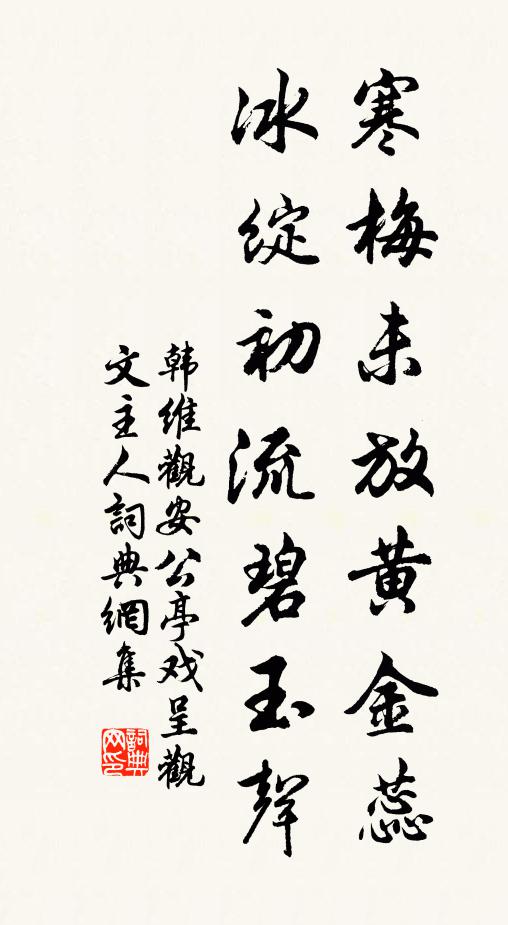 寒梅未放黄金蕊
冰綻初流碧玉聲
韩维觀安公亭戏呈觀
文主人詞典網集
詞典网印